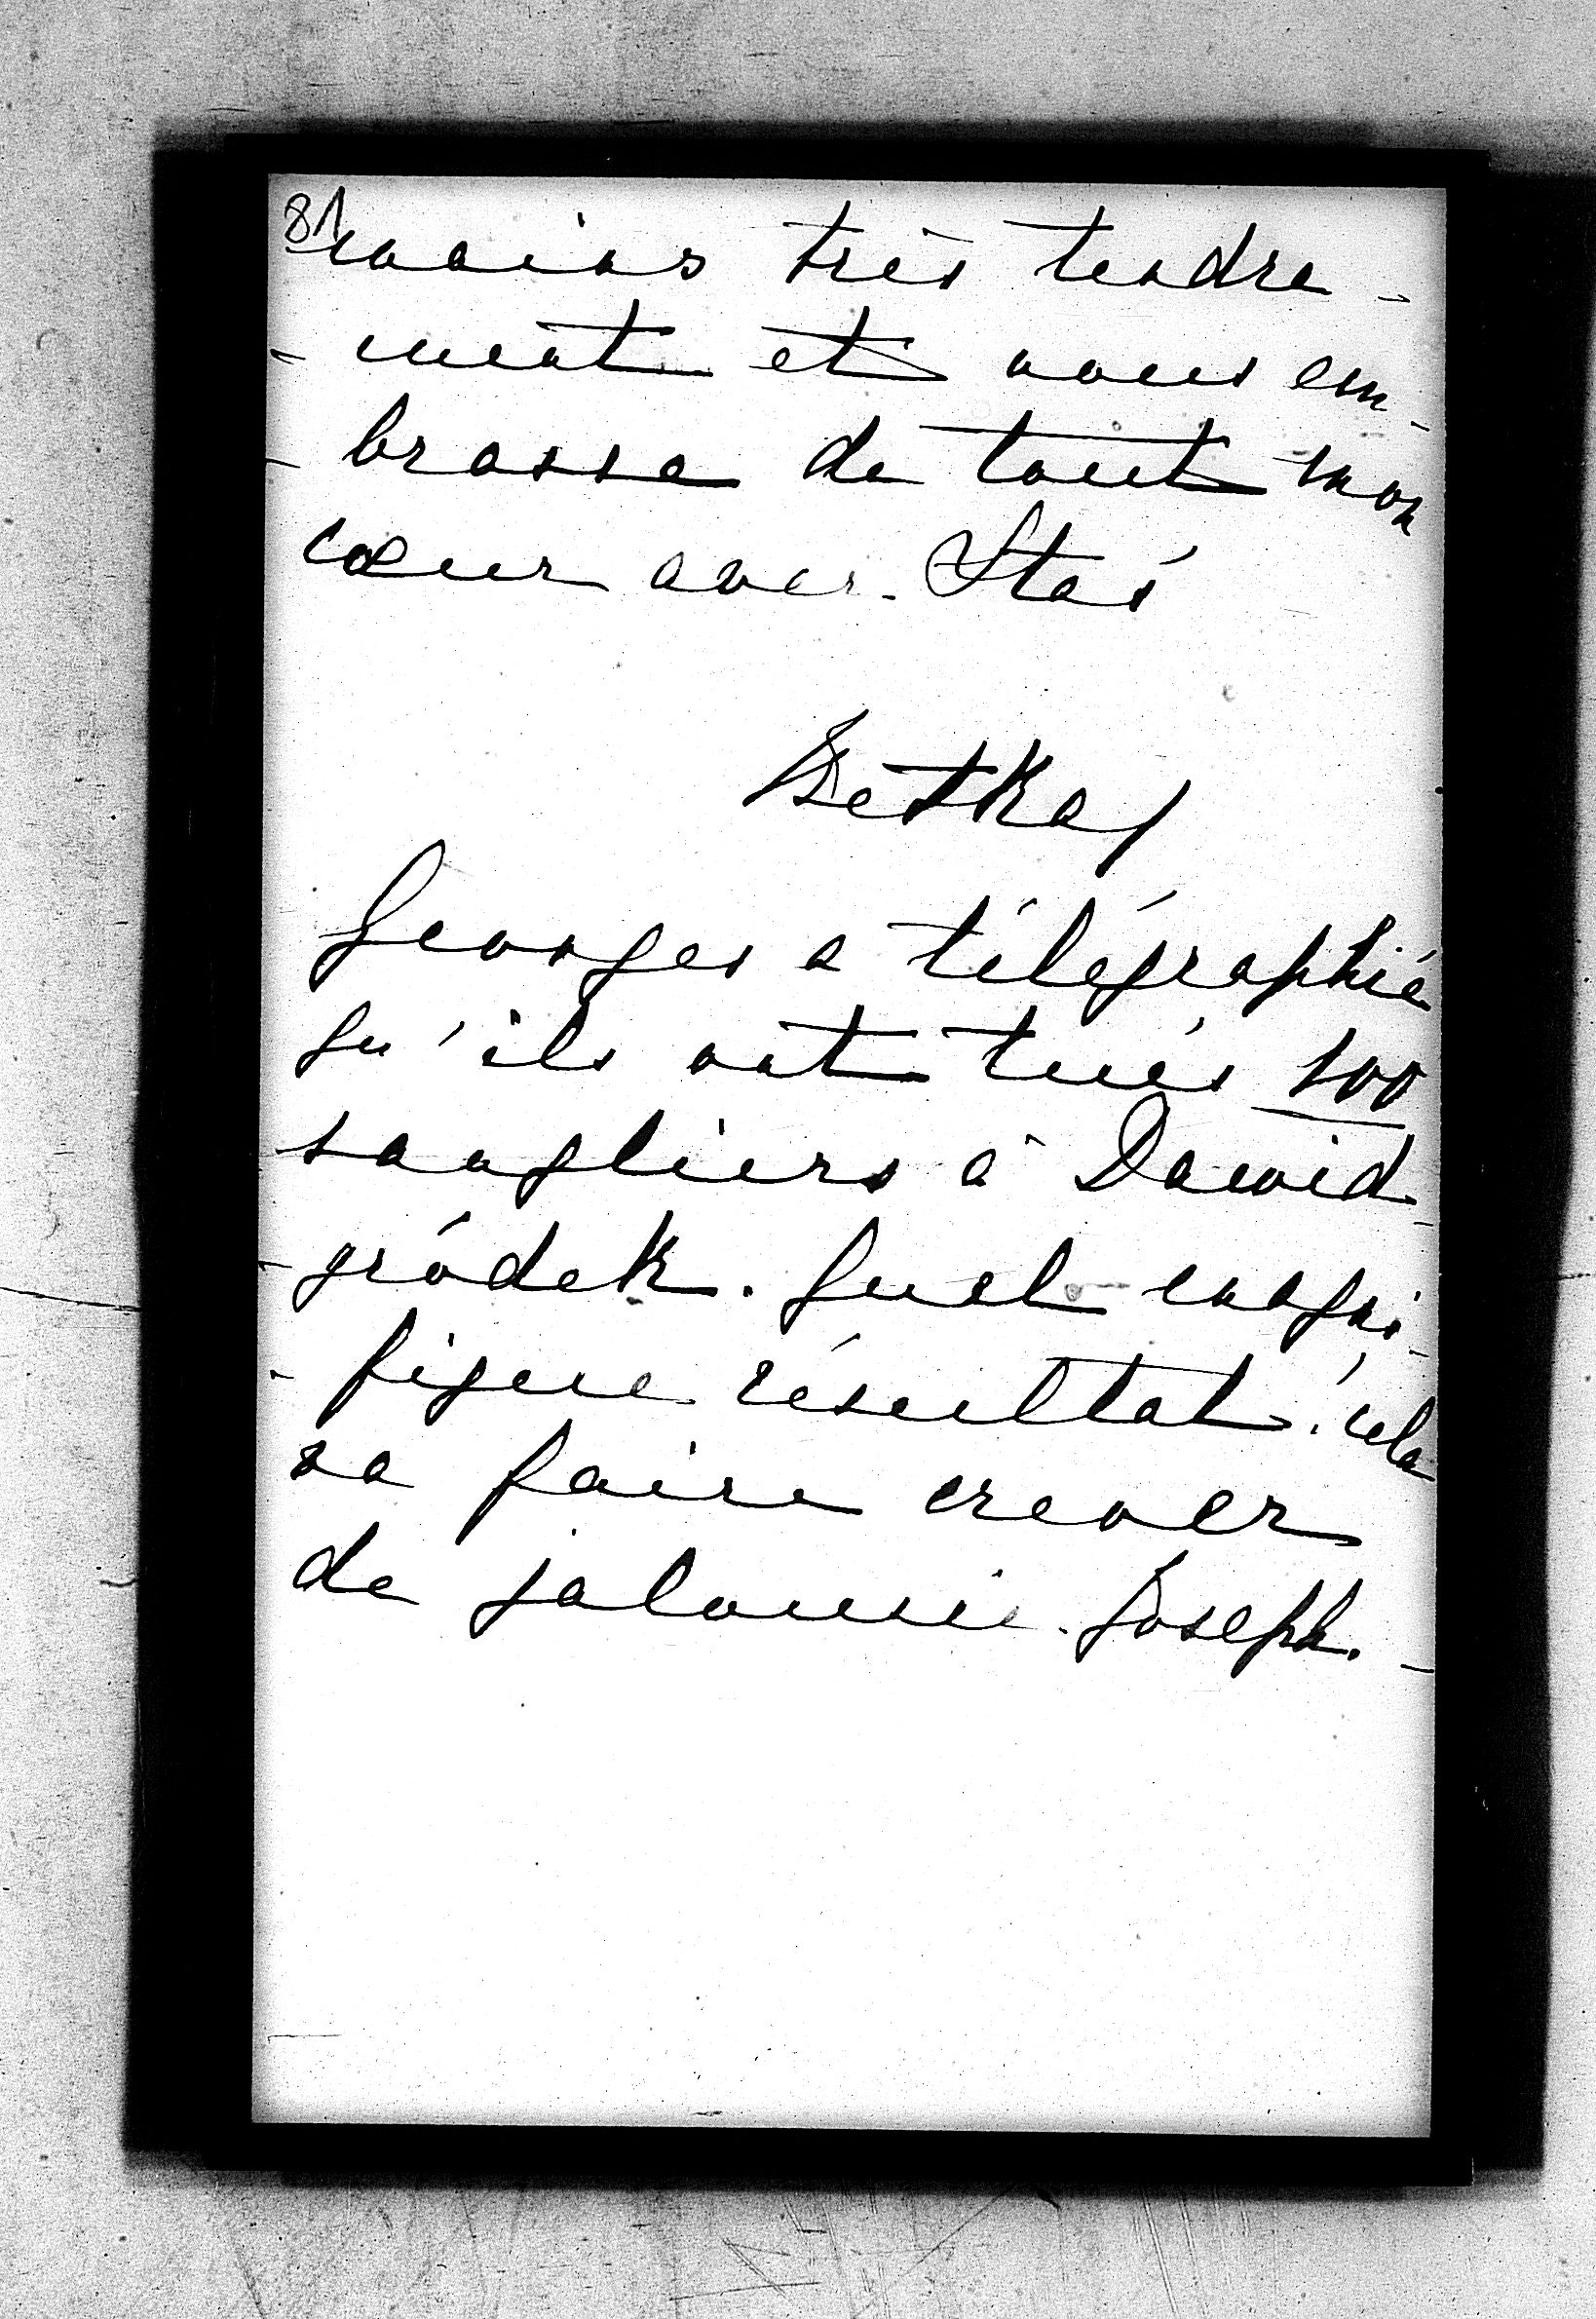 81
mains très tendre-
-ment et vous em-
-brasse de tout mon
cœur avec Staś
Betka
Georges a télégraphié
qu'ils ont tués 100
sangliers à Dawid-
-gródek. Quel magni-
-fique résultat, cela
va faire crever
de jalousie Joseph.-